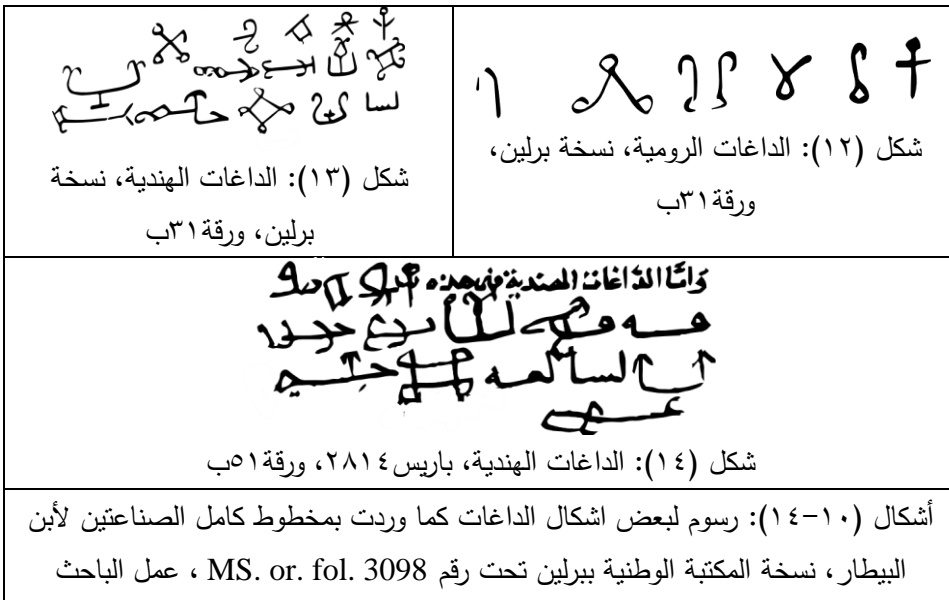 شكل (١٢): الداغات الرومية، نسخة برلين،
ورقة٣١ب
شكل (١٣): الداغات الهندية، نسخة
برلين، ورقة٣١ب
وَامَّا الدَّاغات الهندية فهى هذه
شكل (١٤): الداغات الهندية، باريس٢٨١٤، ورقة٥١ب
أشكال (١٠-١٤): رسوم لبعض اشكال الداغات كما وردت بمخطوط كامل الصناعتين لأبن
البيطار، نسخة المكتبة الوطنية ببرلين تحت رقم MS. or. fol. 3098 ، عمل الباحث